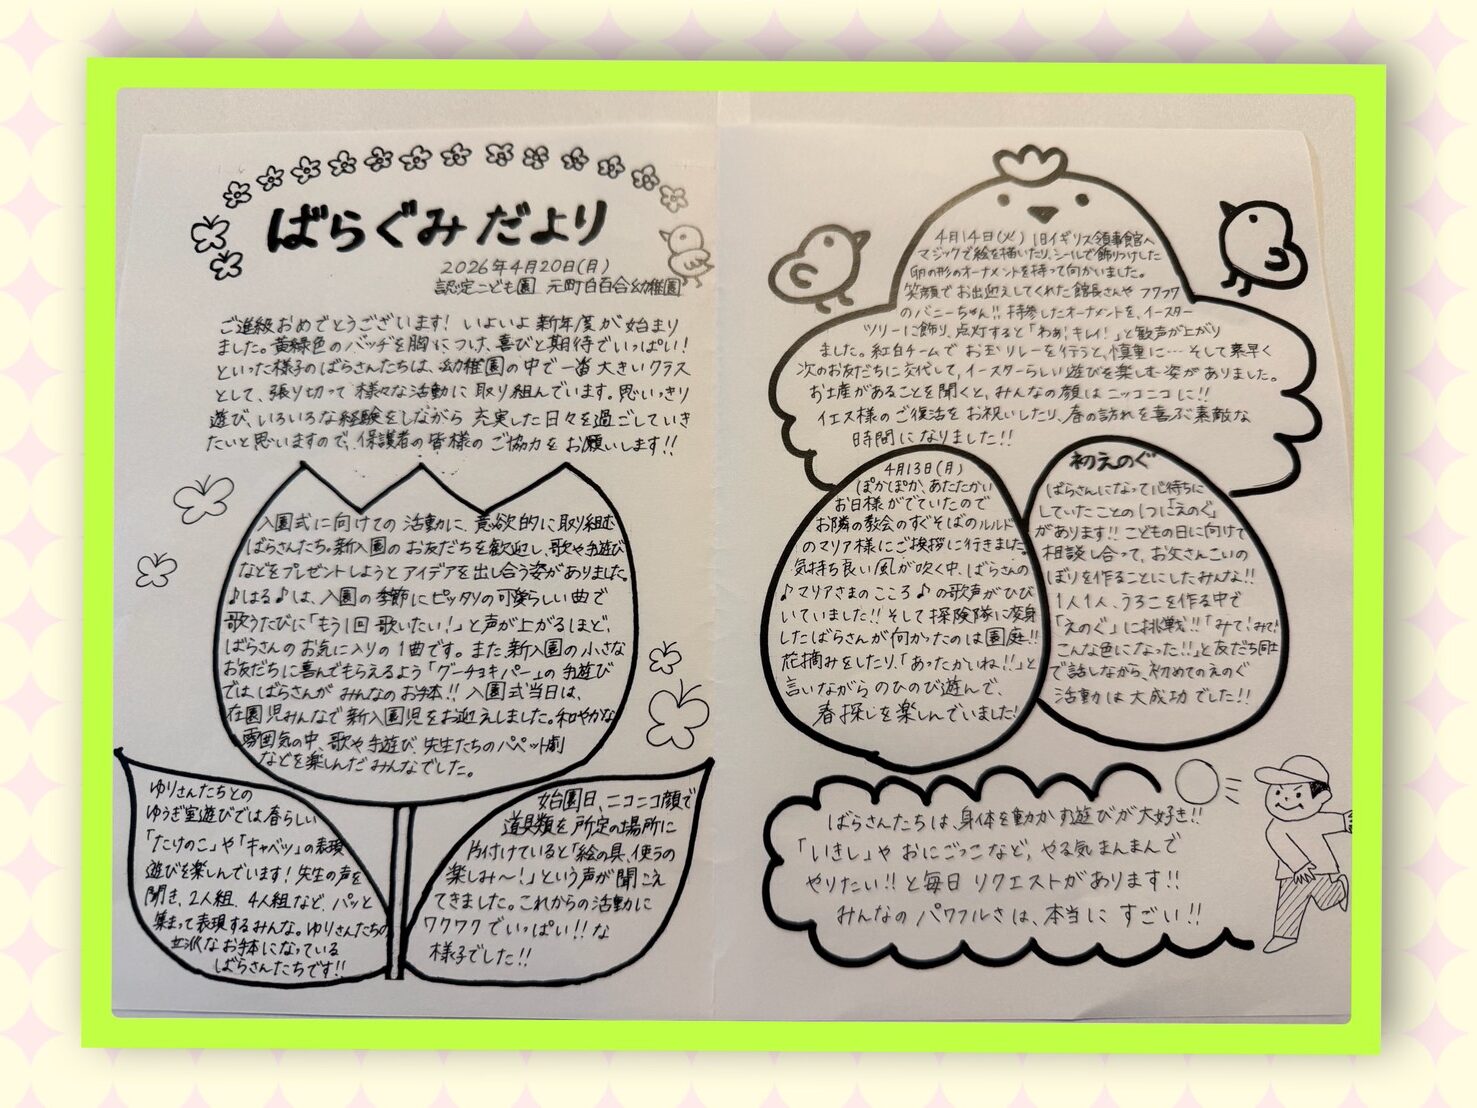 ばらぐみだより
2026年4月20日(月)
認定こども園 元町白百合幼稚園
ご進級おめでとうございます! いよいよ新年度が始まり
ました。黄緑色のバッチを胸につけ、喜びと期待でいっぱい!
といった様子のばらさんたちは、幼稚園の中で一番大きいクラス
として、張り切って様々な活動に取り組んでいます。思いっきり
遊び、いろいろな経験をしながら 充実した日々を過ごしていき
たいと思いますので、保護者の皆様のご協力をお願いします!!
入園式に向けての活動に、意欲的に取り組む
ばらさんたち。新入園のお友だちを歓迎し、歌や手遊び
などをプレゼントしようとアイデアを出し合う姿がありました。
♪はる♪は、入園の季節にピッタリの可愛らしい曲で
歌うたびに「もう1回歌いたい!」と声が上がるほど、
ばらさんのお気に入りの1曲です。また新入園の小さな
お友だちに喜んでもらえるよう「グーチョキパー」の手遊び
では、ばらさんがみんなのお手本!! 入園式当日は、
在園児みんなで新入園児をお迎えしました。和やかな
雰囲気の中、歌や手遊び、先生たちのパペット劇
などを楽しんだみんなでした。
ゆりさんたちとの
ゆうぎ室遊びでは春らしい
「たけのこ」や「キャベツ」の表現
遊びを楽しんでいます!先生の声を
聞き、2人組、4人組など、パッと
集まって表現するみんな。ゆりさんたちの
立派なお手本になっている
ばらさんたちです!!
始園日、ニコニコ顔で
道具類を所定の場所に
片付けていると「絵の具、使うの
楽しみ〜!」という声が聞こえ
てきました。これからの活動に
ワクワクでいっぱい!!な
様子でした!!
4月14日(火) 旧イギリス領事館へ
マジックで絵を描いたり、シールで飾りつけした
卵の形のオーナメントを持って向かいました。
笑顔でお出迎えしてくれた館長さんや フワフワ
のバニーちゃん!! 持参したオーナメントを、イースター
ツリーに飾り、点灯すると「わぁ!キレイ!」と歓声が上がり
ました。紅白チームでお玉リレーを行うと、慎重に…そして素早く
次のお友だちに交代して、イースターらしい遊びを楽しむ姿がありました。
お土産があることを聞くと、みんなの顔はニッコニコに!!
イエス様のご復活をお祝いしたり、春の訪れを喜ぶ素敵な
時間になりました!!
4月13日(月)
ぽかぽか、あたたかい
お日様がでていたので
お隣の教会のすぐそばのルルド
のマリア様にご挨拶に行きました。
気持ち良い風が吹く中、ばらさんの
♪マリアさまのこころ♪の歌声がひび
いていました!! そして探険隊に変身
したばらさんが向かったのは園庭!!
花摘みをしたり、「あったかいね!!」と
言いながらのびのび遊んで、
春探しを楽しんでいました!
初えのぐ
ばらさんになって心待ちに
していたことの1つに「えのぐ」
があります!! こどもの日に向けて
相談し合って、お父さんこいの
ぼりを作ることにしたみんな!!
1人1人、うろこを作る中で
「えのぐ」に挑戦!!「みて!みて!
こんな色になった!!」と友だち同士
で話しながら、初めてのえのぐ
活動は大成功でした!!
ばらさんたちは、身体を動かす遊びが大好き!!
「いきし」や おにごっこなど、やる気まんまんで
やりたい!!と毎日リクエストがあります!!
みんなのパワフルさは、本当にすごい!!